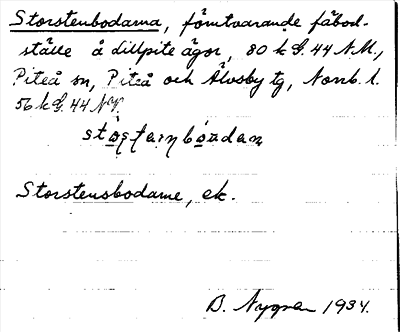 Storstenbodarna, förutvarande fäbod-
ställe å Lillpite ägor, 80 k S. 44 N.M.,
Piteå sn, Piteå och Älvsby tg, Norrb. l.
56 k S. 44 NV.
Storstensbodarne, ek.
B. Nygren 1934.